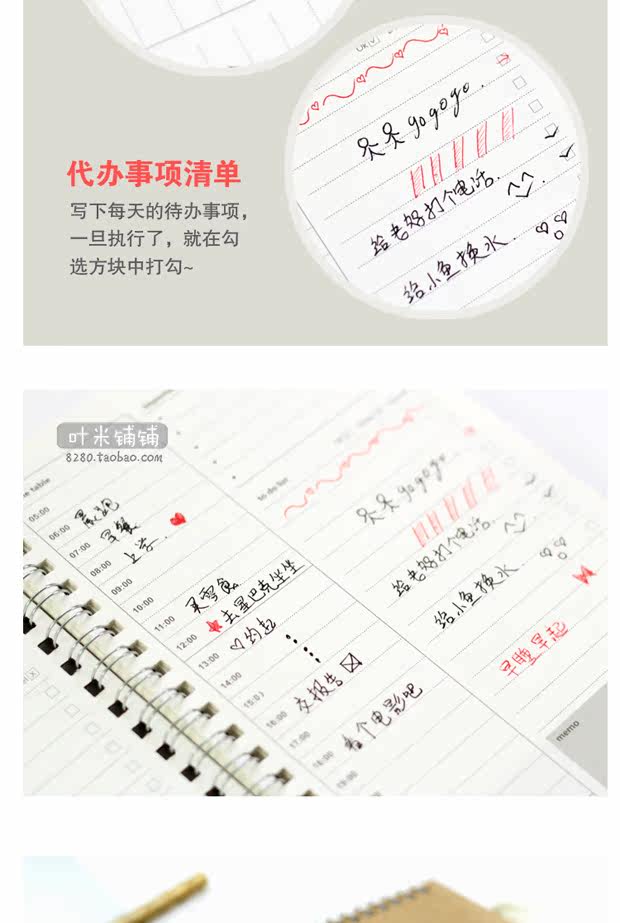 代办事项清单
写下每天的待办事项，
一旦执行了，就在勾
选方块中打勾~
gogogo.
给老妈打个电话.
给小鱼换水.
叶米铺铺
8280.taobao.com
to do list
gogogo
给老妈打个电话.
给小鱼换水.
早睡早起
memo
05:00
06:00 晨跑
07:00 早餐
08:00 上学.
09:00
10:00
11:00 买零食
12:00 去星巴克坐坐
13:00 约会
14:00
16:00 交报告
17:00
18:00 看个电影吧
19:00